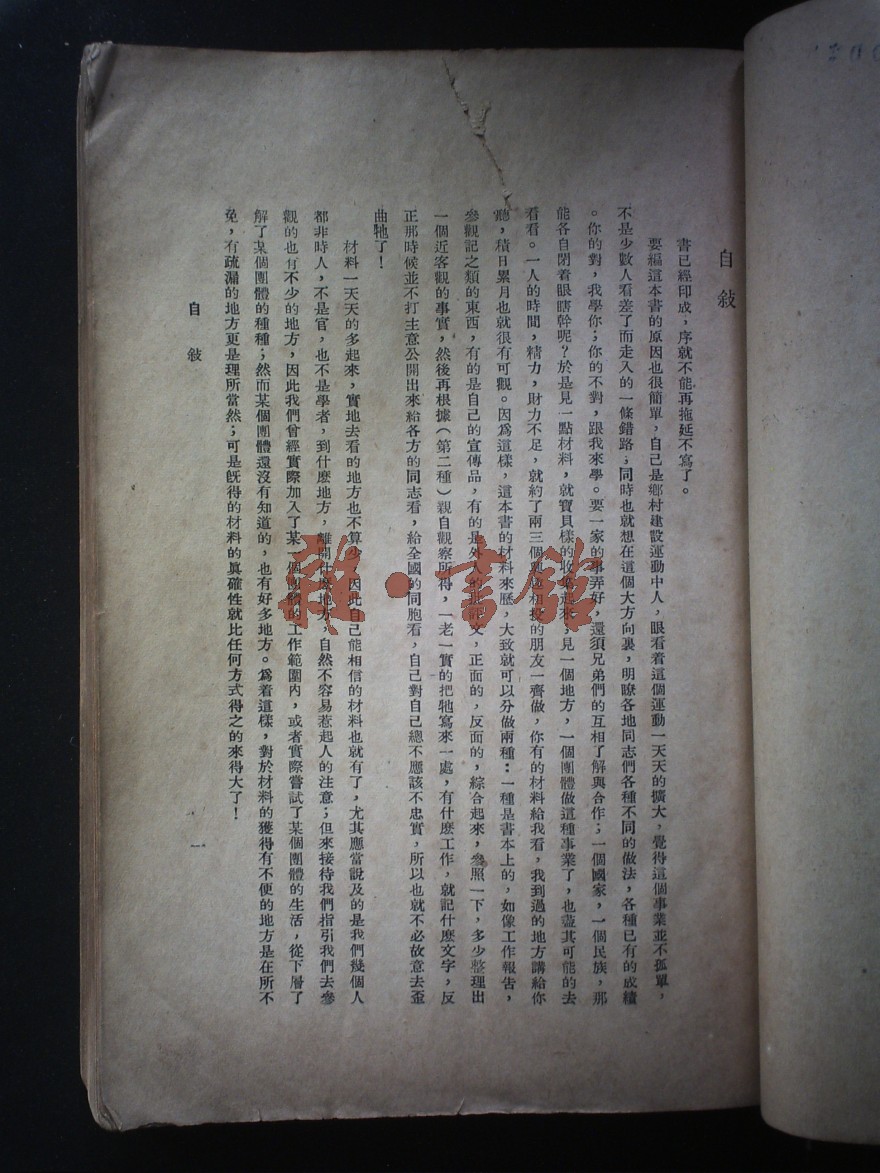 自敍
書已經印成，序就不能再拖延不寫了。
要編這本書的原因也很簡單，自己是鄉村建設運動中人，眼看着這個運動一天天的擴大，覺得這個事業並不孤單，
不是少數人看差了而走入的一條錯路；同時也就想在這個大方向裏，明瞭各地同志們各種不同的做法，各種已有的成績
。你的對，我學你；你的不對，跟我來學。要一家的事弄好，還須兄弟們的互相了解與合作；一個國家，一個民族，那
能各自閉着眼瞎幹呢？於是見一點材料，就寶貝樣的收起來，見一個地方，一個團體做這種事業了，也盡其可能的去
看看。一人的時間，精力，財力不足，就約了兩三個興趣相投的朋友一齊做，你有的材料給我看，我到過的地方講給你
聽，積日累月也就很有可觀。因爲這樣，這本書的材料來歷，大致就可以分做兩種：一種是書本上的，如像工作報告，
參觀記之類的東西，有的是自己的宣傳品，有的是外人的批評文，正面的，反面的，綜合起來，參照一下，多少整理出
一個近客觀的事實，然後再根據（第二種）親自觀察所得，一老一實的把牠寫來一處，有什麽工作，就記什麽文字，反
正那時候並不打主意公開出來給各方的同志看，給全國的同胞看，自己對自己總不應該不忠實，所以也就不必故意去歪
曲牠了！
材料一天天的多起來，實地去看的地方也不算少，因此自己能相信的材料也就有了，尤其應當說及的是我們幾個人
都非時人，不是官，也不是學者，到什麽地方，離開什麽地方，自然不容易惹起人的注意；但來接待我們指引我們去參
觀的也有不少的地方，因此我們曾經實際加入了某一個團體的工作範圍內，或者實際嘗試了某個團體的生活，從下層了
解了某個團體的種種；然而某個團體還沒有知道的，也有好多地方。爲着這樣，對於材料的獲得有不便的地方是在所不
免，有疏漏的地方更是理所當然；可是旣得的材料的眞確性就比任何方式得之的來得大了！
自敍
一